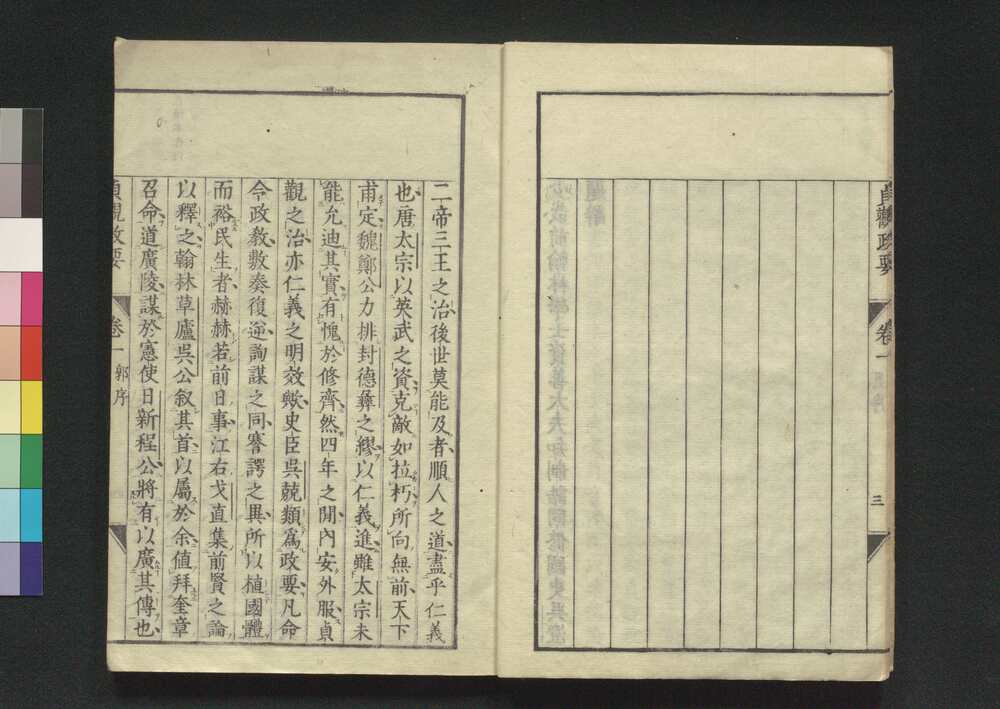 貞觀政要
卷一
三
二帝三王之治後世莫能及者順人之道盡乎仁義
也唐太宗以英武之資克敵如拉朽所向無前天下
甫定魏鄭公力排封德彝之繆以仁義進雖太宗未
能允迪其實有愧於修齊然四年之閒內安外服貞
觀之治亦仁義之明效歟史臣吳兢類爲政要凡命
令政教敷奏復逆詢謀之同謇諤之異所以植國體
而裕民生者赫赫若前日事江右戈直集前賢之論
以釋之翰林草廬吳公叙其首以屬於余值拜奎章
召命道廣陵謀於憲使日新程公將有以廣其傳也
貞觀政要
卷一
郭序